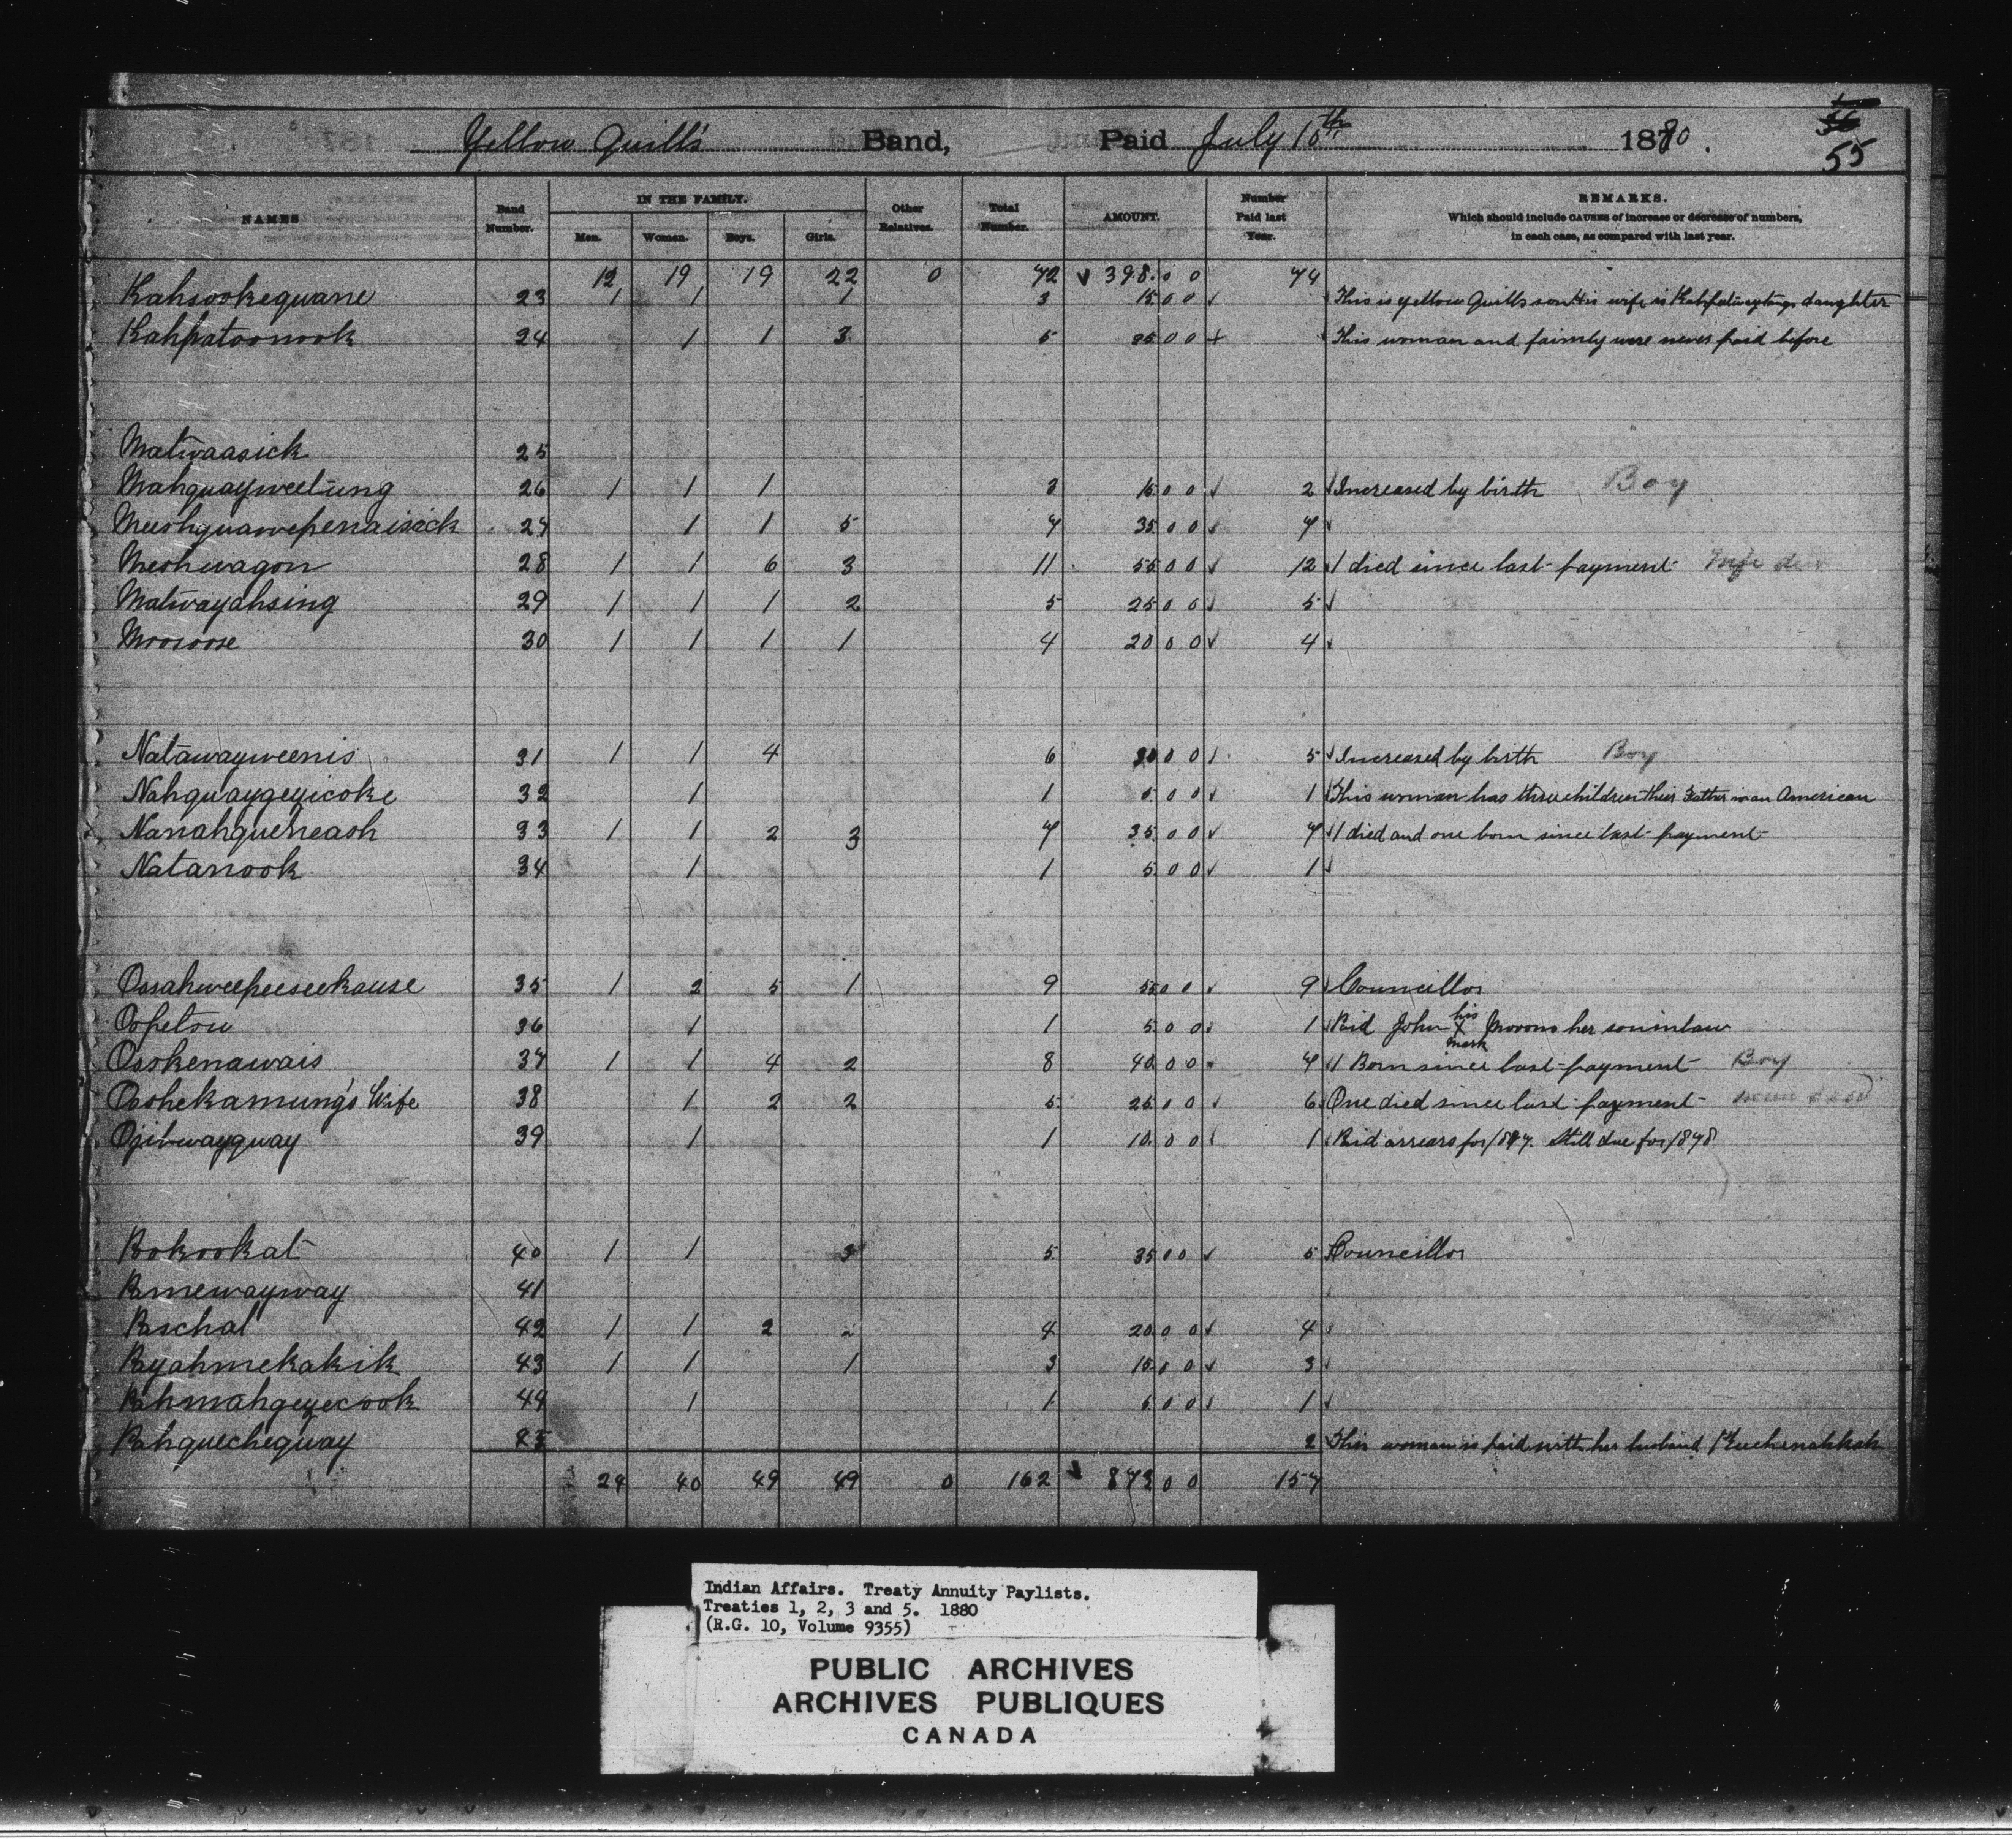 Yellow Quill's Band, Paid July 10th 1880. 55
NAMES Band Number. IN THE FAMILY. Men. Women. Boys. Girls. Other Relatives. Total Number. AMOUNT. Number Paid last Year. REMARKS. Which should include CAUSES of increase or decrease of numbers, in each case, as compared with last year.
12 19 19 22 0 72 398.00 74
Kahsookequane 23 1 1 1 3 15.00 This is Yellow Quills son His wife is daughter
Kahpatoonook 24 1 1 3 5 25.00 This woman and faimly were never paid before
Matwaasick 25
Mahquayweetung 26 1 1 1 3 15.00 2 Increased by birth Boy
Meeshquawepenaisick 27 1 1 5 7 35.00 7
Meshwagon 28 1 1 6 3 11 55.00 12 1 died since last payment
Matwayahsing 29 1 1 1 2 5 25.00 5
Moosoose 30 1 1 1 1 4 20.00 4
Natawayweenis 31 1 1 4 6 30.00 5 Increased by birth Boy
Nahquaygeyicoke 32 1 1 5.00 1 This woman has three children their Father is an American
Nanahqueneash 33 1 1 2 3 7 35.00 7 1 died and one born since last payment
Natanook 34 1 1 5.00 1
Oosahweepeeseekause 35 1 2 5 1 9 55.00 9 Councillor
Oopetow 36 1 1 5.00 1 Paid John his X mark Moosoo her soninlaw
Osokenawais 37 1 1 4 2 8 40.00 7 1 Born since last payment Boy
Ooshekamung's Wife 38 1 2 2 5 25.00 6 One died since last payment
Ojibwayquay 39 1 1 10.00 1 Paid arrears for 1877. Still due for 1878
Pokookat 40 1 1 3 5 35.00 5 Councillor
Pamewayway 41
Paschal 42 1 1 2 4 20.00 4
Payahmekakik 43 1 1 1 3 15.00 3
Pahmahgeyecook 44 1 1 5.00 1
Pahquechequay 45 2 This woman is paid with her husband
24 40 49 49 0 162 873.00 157
Indian Affairs. Treaty Annuity Paylists.
Treaties 1, 2, 3 and 5. 1880
(R.G. 10, Volume 9355)
PUBLIC ARCHIVES
ARCHIVES PUBLIQUES
CANADA